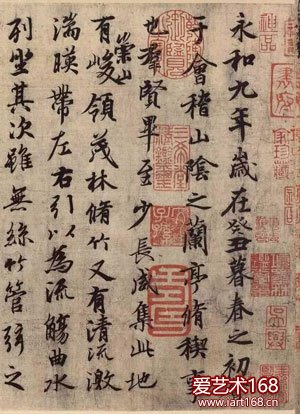 永和九年歲在癸丑暮春之初
于會稽山陰之蘭亭脩稧事
也羣賢畢至少長咸集此地
有崇山峻領茂林脩竹又有清流激
湍暎帶左右引以為流觴曲水
列坐其次雖無絲竹管弦之
爱艺术168
www.art168.cn